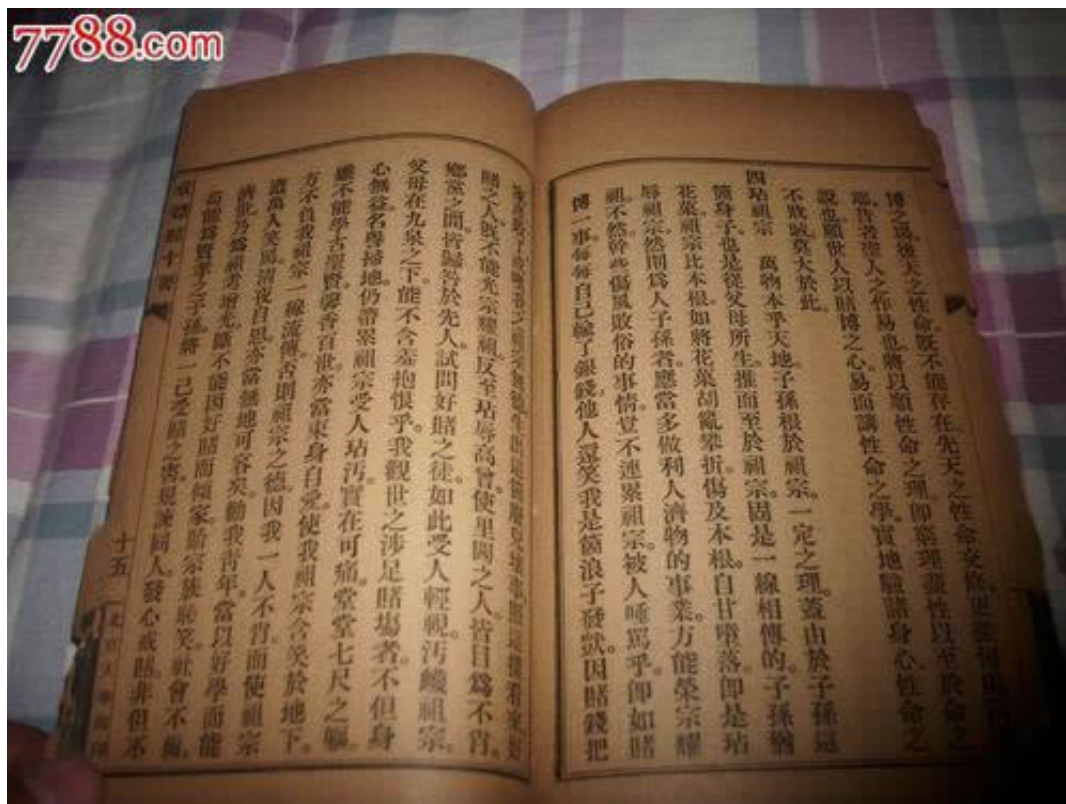 7788.com
博之說後天之性命既不能存在先天之性命交
耶。昔者聖人之作易也將以順性命之理即窮理盡性以至於命之
說也。願世人以賭博之心易而講性命之學實地驗諸身心性命之
不戕賊莫大於此。
四玷祖宗 萬物本乎天地子孫根於祖宗。一定之理。蓋由於子孫這
箇身子也是從父母所生。推而至於祖宗。固是一線相傳的。子孫猶
花菓祖宗比本根如將花菓胡亂攀折。傷及本根。自甘墮落。即是玷
辱祖宗。然則為人子孫者。應當多做利人濟物的事業。方能榮宗耀
祖。不然。幹些傷風敗俗的事情。豈不連累祖宗。被人唾罵乎。即如賭
博一事。每每自己輸了銀錢。他人還笑我是箇浪子發獃。因賭錢把
賭之人既不能光宗耀祖。反至玷辱高曾。使里閭之人。皆目為不肖。
鄉黨之間。皆歸咎於先人。試問好賭之徒。如此受人輕視。污衊祖宗。
父母在九泉之下。能不含羞抱恨乎。我觀世之涉足賭場者。不但身
心無益。名譽掃地。仍帶累祖宗。受人玷污。實在可痛。堂堂七尺之軀。
雖不能學古聖賢。馨香百世。亦當束身自愛。使我祖宗含笑於地下。
方不負我祖宗一線流傳。否則祖宗之德。因我一人不肖。而使祖宗
遭萬人笑罵。清夜自思。亦當無地可容矣。勸我青年。當以好學而能
濟世。乃為祖考增光。雖不能因好賭而傾家。貽宗族恥笑。社會不齒。
苟能為賢孝之子孫。將一己受賭之害。規諫同人。發心戒賭。非但不
十五